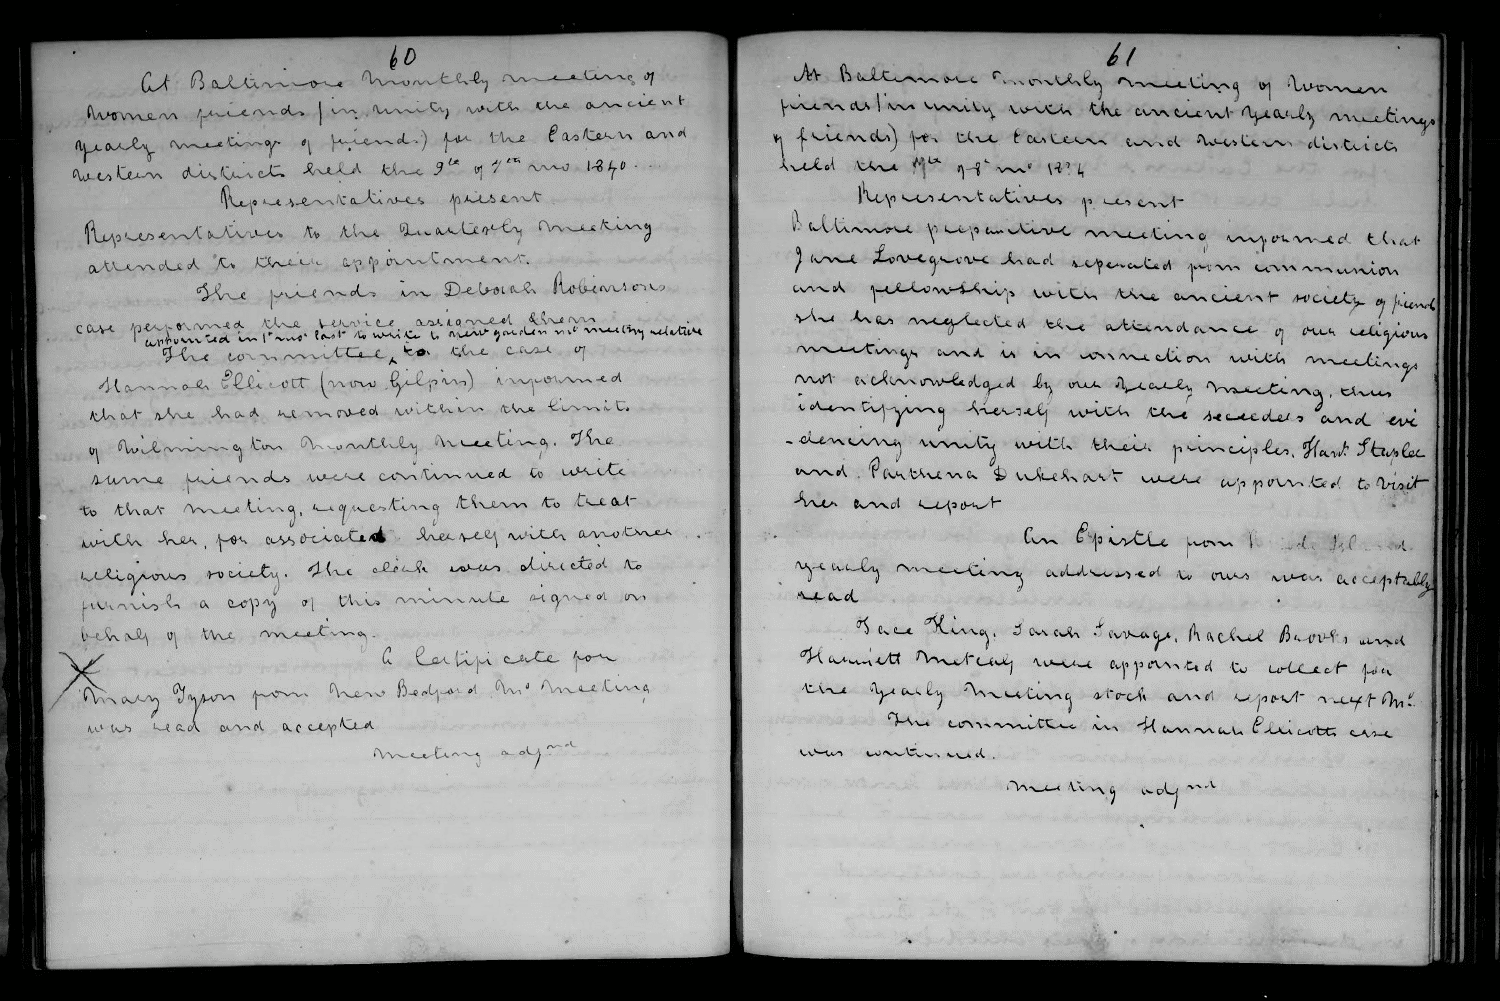 60
At Baltimore Monthly meeting of
Women friends (in unity with the ancient
yearly meetings of friends) for the Eastern and
Western districts held the 9th of 7th mo 1840.
Representatives present
Representatives to the Quarterly Meeting
attended to their appointment.
The friends in Deborah Robinsons
case performed the service assigned them
appointed in 1st mo last to write to new garden mo meeting relative
The committee ^ to the case of
Hannah Ellicott (now Gilpin) informed
that she had removed within the limits
of Wilmington Monthly Meeting. The
same friends were continued to write
to that meeting, requesting them to treat
with her, for associated herself with another
religious society. The clerk was directed to
furnish a copy of this minute signed on
behalf of the meeting.
A Certificate for
Mary Tyson from New Bedford Mo Meeting
was read and accepted
Meeting adjnd
61
At Baltimore Monthly meeting of Women
friends (in unity with the ancient yearly meetings
of friends) for the Eastern and Western districts
held the of 8th mo
Representatives present
Baltimore preparative meeting informed that
Jane Lovegrove had seperated from communion
and fellowship with the ancient society of friends
she has neglected the attendance of our religious
meetings and is in connection with meetings
not acknowledged by our Yearly Meeting, thus
identifying herself with the seceeders and evi
-dencing unity with their principles. Hart Stapler
and Parthena Dukehart were appointed to visit
her and report
An Epistle from Island
yearly meeting addressed to ours was acceptably
read
Tace King, Sarah Savage, Rachel Brooks and
Harriett Metcalf were appointed to collect for
the Yearly Meeting stock and report next Mo.
The committee in Hannah Ellicotts case
was continued.
Meeting adjnd